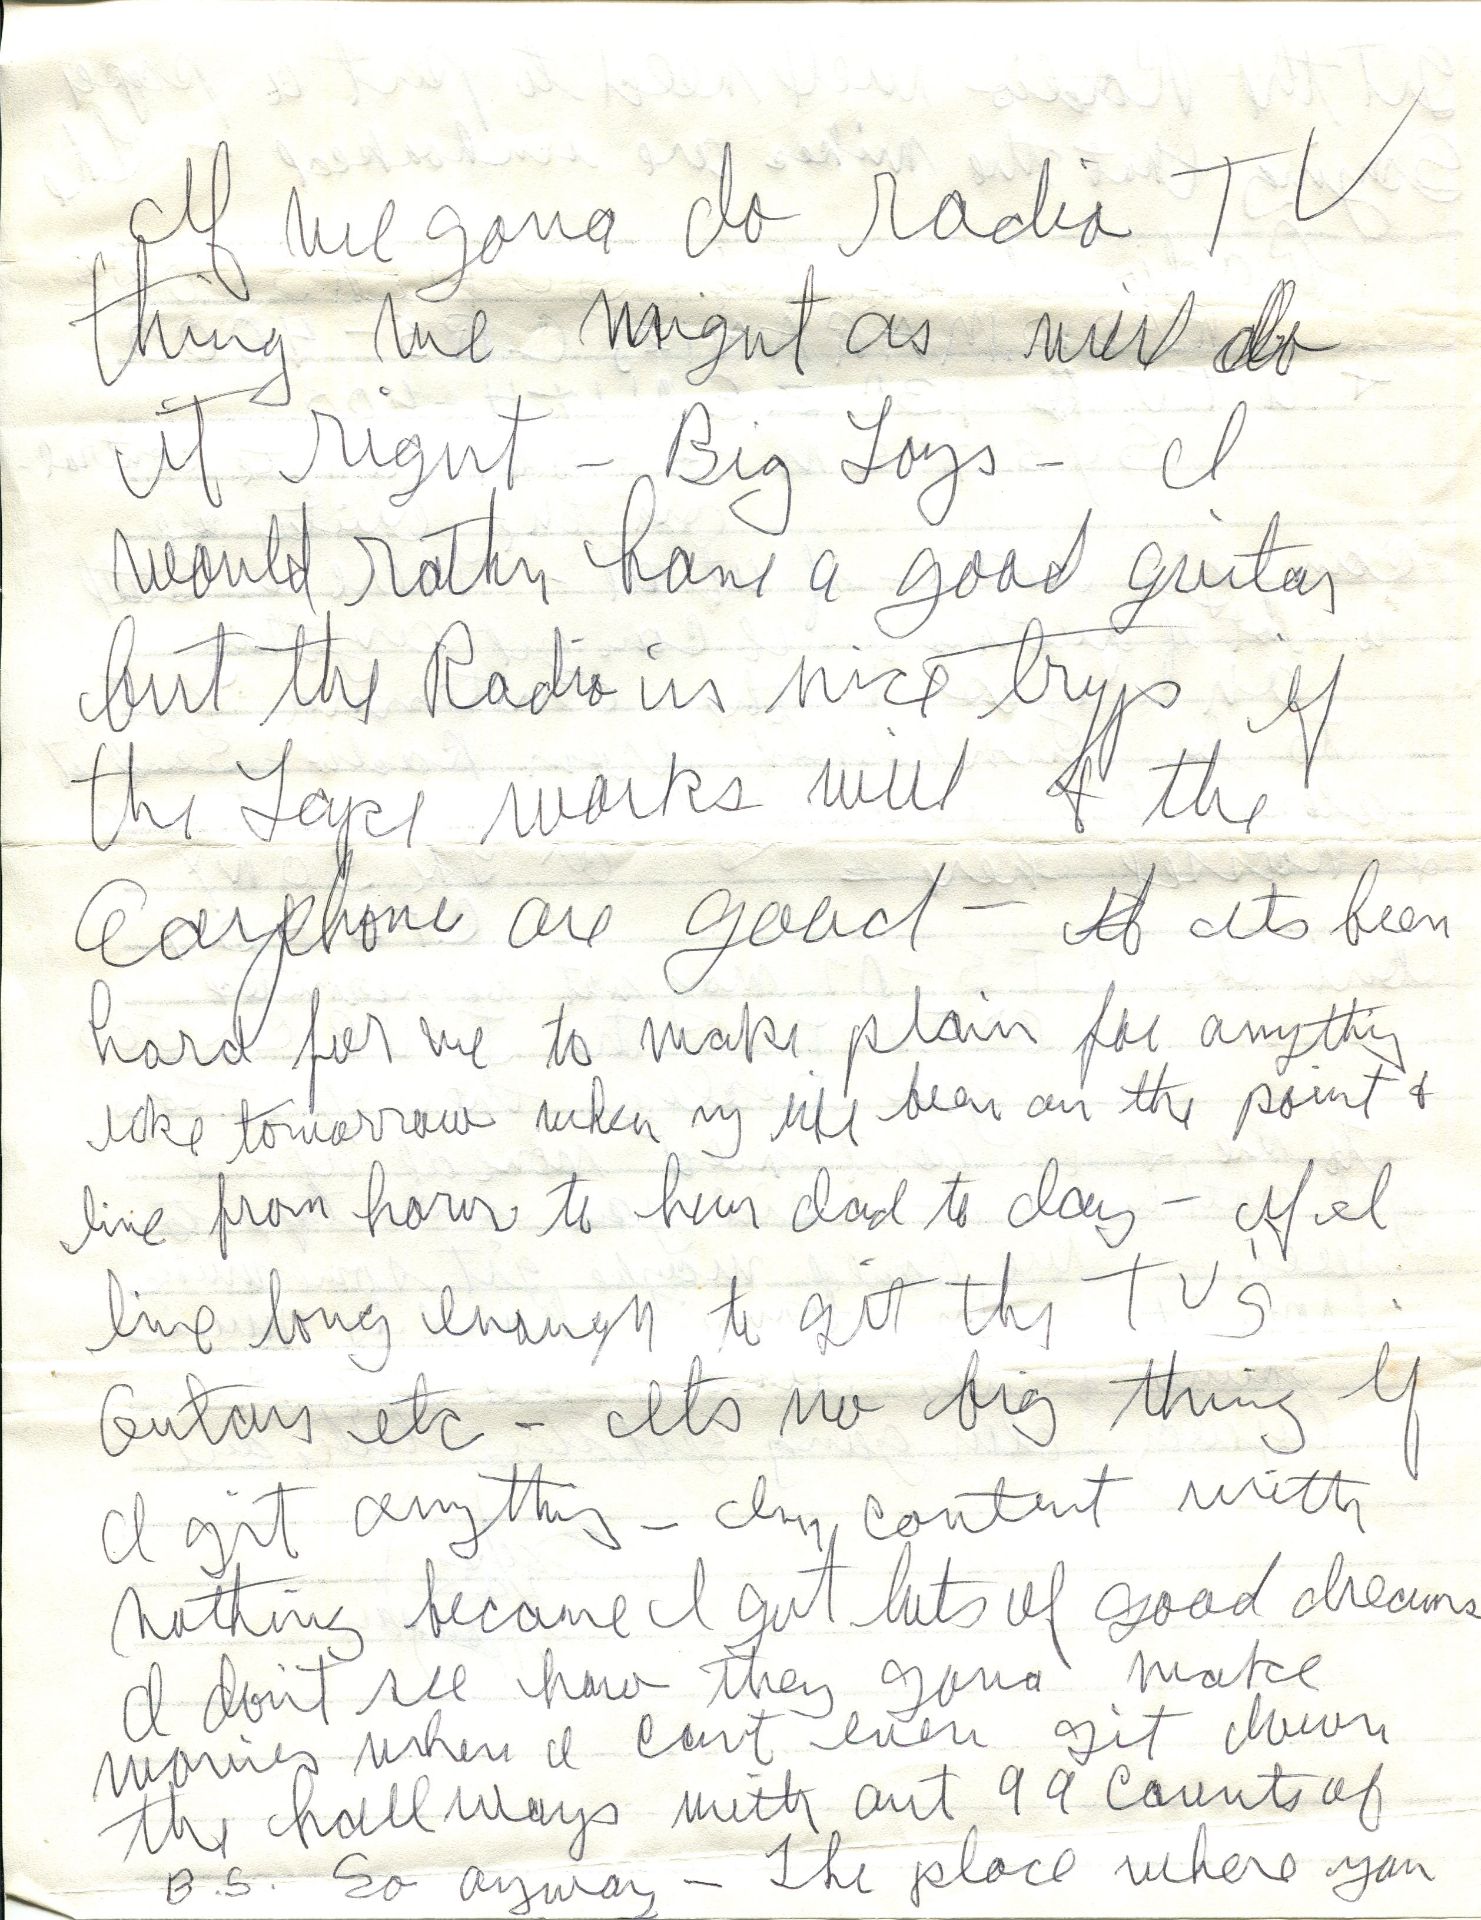 If we gona do radio TV
thing we might as well do
it right - Big Toys - I
would rather have a good guitar
but the Radio is nice tryp if
the Tape works well & the
Earphone are good - Its been
hard for me to make plain for anything
like tomorrow when my life been on the point &
live from hour to hour dad to day - If I
live long enough to git the TV's
Gutars etc - Its no big thing If
I git anything - Im content with
nothing because I got lots of good dreams
I don't see how they gona make
movies when I cant even git down
the hallways with out 99 Counts of
B.S. So anyway - The place where you